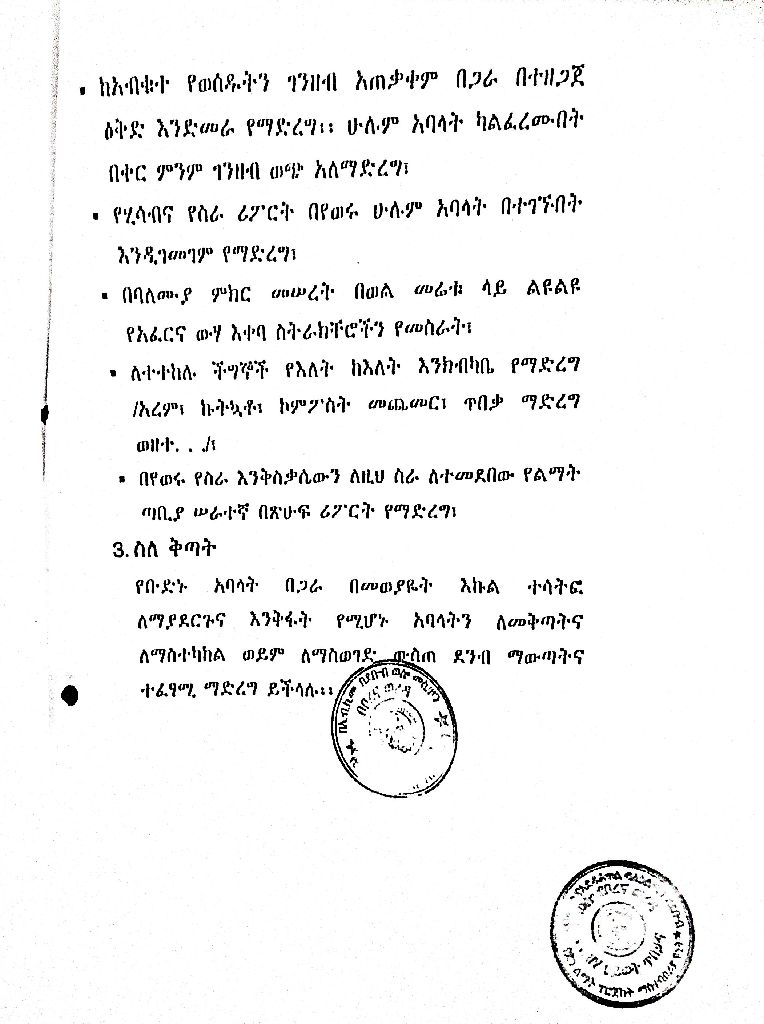 ▪ ከአብቁተ የወሰዱትን ገንዘብ አጠቃቀም በጋራ በተዘጋጀ
ዕቅድ እንድመራ የማድረግ፡፡ ሁሉም አባላት ካልፈረሙበት
በቀር ምንም ገንዘብ ወጭ አለማድረግ፣
▪ የሂሳብና የስራ ሪፖርት በየወሩ ሁሉም አባላት በተገኙበት
እንዲገመገም የማድረግ፣
▪ በባለሙያ ምክር መሠረት በወል መሬቱ ላይ ልዩልዩ
የአፈርና ውሃ እቀባ ስትራክቸሮችን የመስራት፣
▪ ለተተከሉ ችግኞች የእለት ከእለት እንክብካቤ የማድረግ
/አረም፣ ኩትኳቶ፣ ኮምፖስት መጨመር፣ ጥበቃ ማድረግ
ወዘተ. . ./፣
▪ በየወሩ የስራ እንቅስቃሴውን ለዚህ ስራ ለተመደበው የልማት
ጣቢያ ሠራተኛ በጽሁፍ ሪፖርት የማድረግ፣
3. ስለ ቅጣት
የቡድኑ አባላት በጋራ በመወያዬት እኩል ተሳትፎ
ለማያደርጉና እንቅፋት የሚሆኑ አባላትን ለመቅጣትና
ለማስተካከል ወይም ለማስወገድ ውስጠ ደንብ ማውጣትና
ተፈፃሚ ማድረግ ይችላሉ፡፡